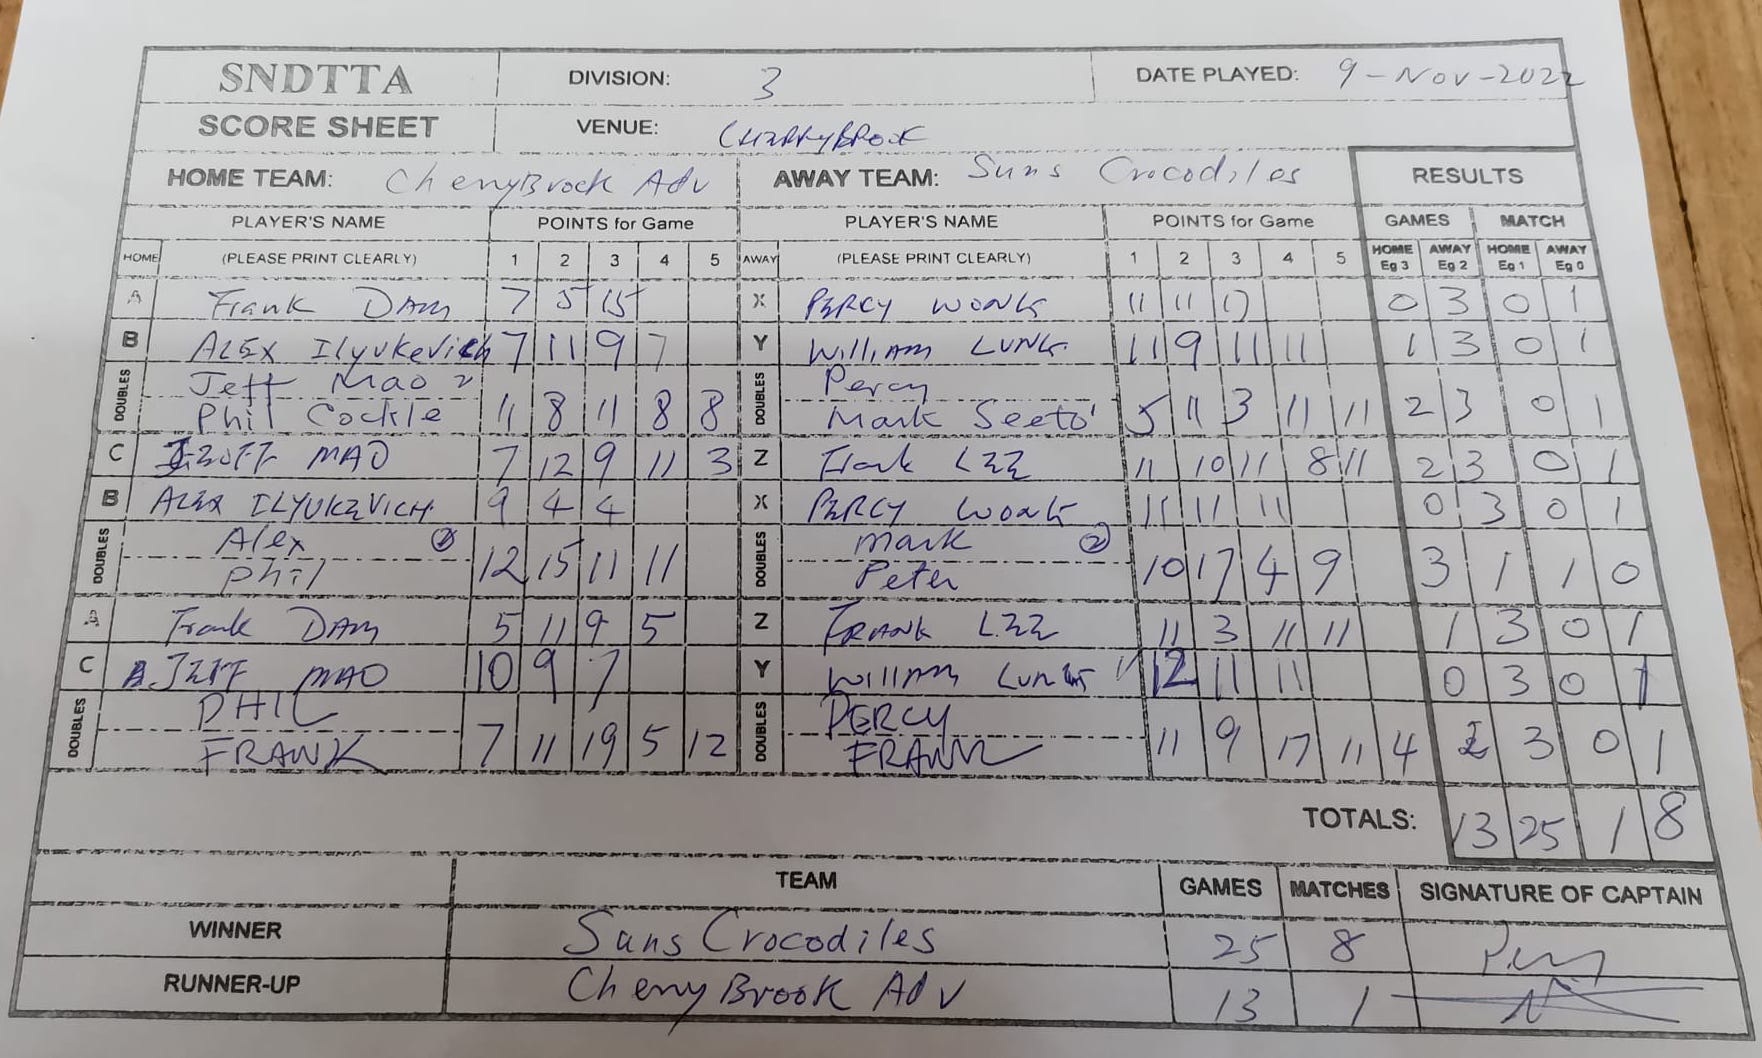 SNDTTA DIVISION: 3 DATE PLAYED: 9-Nov-2022
SCORE SHEET VENUE: CHERRYBROOK
HOME TEAM: CherryBrook Adv AWAY TEAM: Suns Crocodiles RESULTS
PLAYER'S NAME POINTS for Game PLAYER'S NAME POINTS for Game GAMES MATCH
HOME (PLEASE PRINT CLEARLY) 1 2 3 4 5 AWAY (PLEASE PRINT CLEARLY) 1 2 3 4 5 HOME Eg 3 AWAY Eg 2 HOME Eg 1 AWAY Eg 0
A Frank DAM 7 5 15 X PERCY WONG 11 11 17 0 3 0 1
B ALEX Ilyukevich 7 11 9 7 Y William LUNG 11 9 11 11 1 3 0 1
DOUBLES Jeff Mao DOUBLES Percy
Phil Cockle 11 8 11 8 8 Mark Seeto 5 11 3 11 11 2 3 0 1
C JEFF MAO 7 12 9 11 3 Z Frank LEE 11 10 11 8 11 2 3 0 1
B ALEX ILYUKEVICH 9 4 4 X PERCY WONG 11 11 11 0 3 0 1
DOUBLES Alex 2 DOUBLES Mark 2
Phil 12 15 11 11 Peter 10 17 4 9 3 1 1 0
A Frank DAM 5 11 9 5 Z FRANK LEE 11 3 11 11 1 3 0 1
C JEFF MAO 10 9 7 Y William LUNG 12 11 11 0 3 0 1
DOUBLES PHIL DOUBLES PERCY
FRANK 7 11 19 5 12 FRANK 11 9 17 11 4 2 3 0 1
TOTALS: 13 25 1 8
TEAM GAMES MATCHES SIGNATURE OF CAPTAIN
WINNER Suns Crocodiles 25 8
RUNNER-UP CherryBrook Adv 13 1